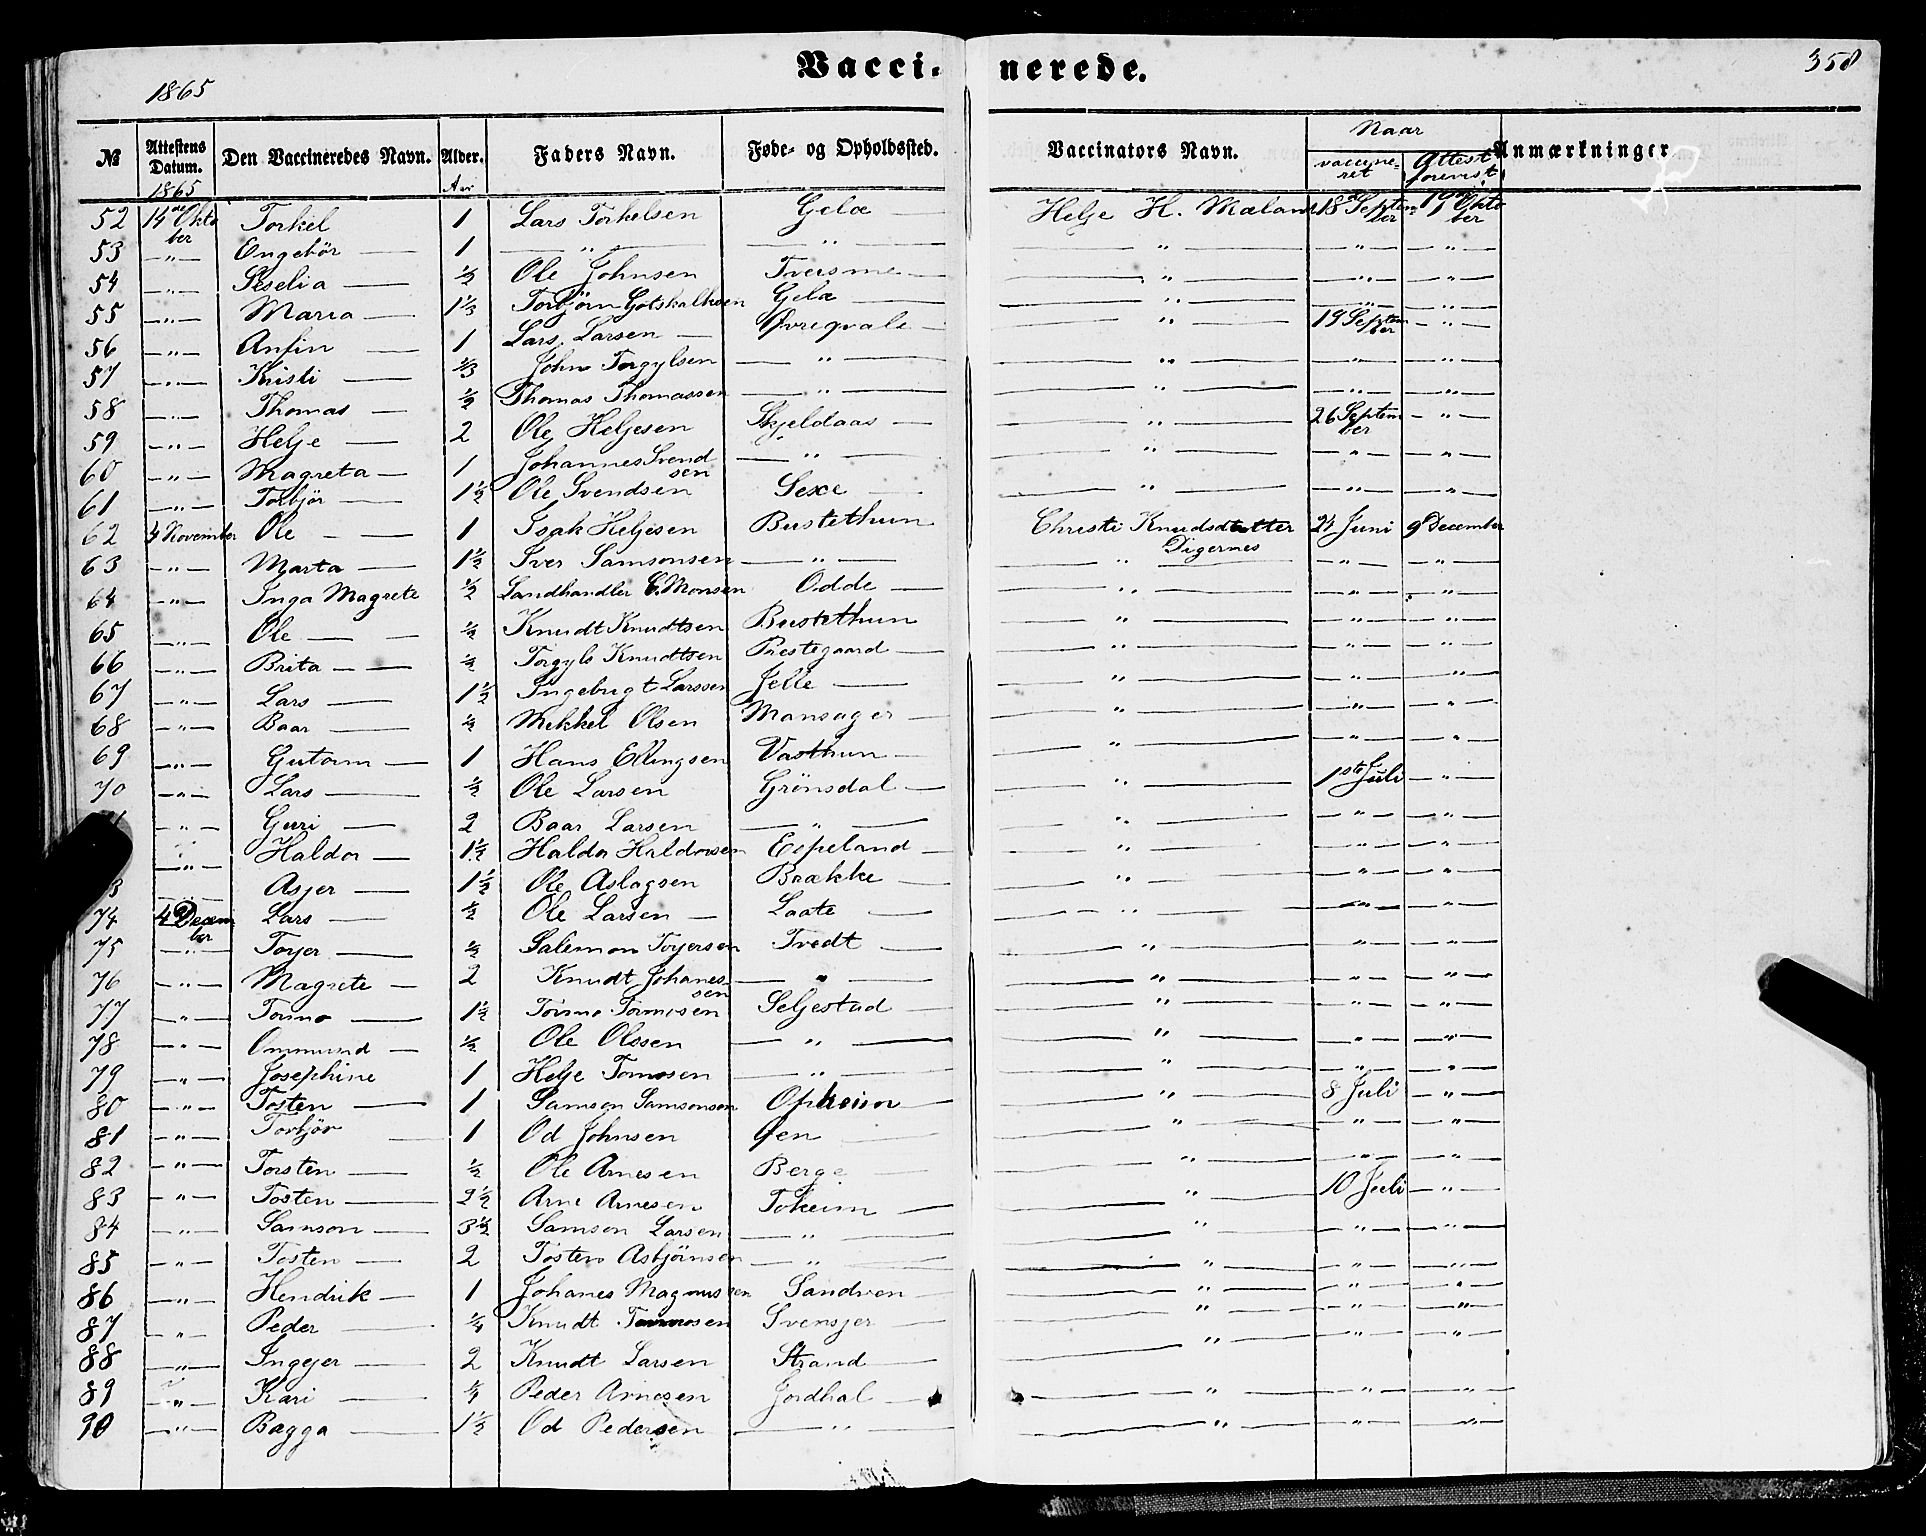 Vaccinerede.
1865
358
№ Attestens Datum. Den Vaccineredes Navn. Alder. Faders Navn. Føde- og Opholdssted. Vaccinators Navn. Naar vaccineret Attest forevist Anmærkninger
1865 Aar
52 14de Oktober Torkel 1 Lars Torkelsen Gelæ Helje H. Mæland 18de Septem-ber 19de Oktober
53 —"— Engebør — 1 — " — — " — — " — —"— —"—
54 —"— Seselia — ½ Ole Johnsen Tveisme — — " — —"— —"—
55 —"— Maria — 1⅓ Torbjørn Gotskalksen Gelæ — — " — —"— —"—
56 —"— Anfin — 1 Lars Larsen — Øvreqvale — — " — 19 September —"—
57 —"— Kristi — ⅓ John Torgylsen — " — — " — —"— —"—
58 —"— Thomas — ½ Thomas Thomassen — " — — " — —"— —"—
59 —"— Helje — 2 Ole Heljesen Skjeldaas — — " — 26 September —"—
60 —"— Magreta — 1 Johannes Svendsen — " — — " — —"— —"—
61 —"— Torbjør — 1½ Ole Svendsen Sexe — — " — —"— —"—
62 4 November Ole — 1 Isak Heljesen Bustethun Christi Knudsdtotter Digernes 24 Juni 9 December
63 —"— Marta — 1½ Iver Samsonsen — " — — " — —"— —"—
64 —"— Inga Magrete ½ Landhandler C. Monsen Odde — — " — —"— —"—
65 —"— Ole — ½ Knudt Knudtsen Bustethun — " — —"— —"—
66 —"— Brita — ½ Torgyls Knudtsen Prestegaard — — " — —"— —"—
67 —"— Lars — 1½ Ingebrigt Larssen Jelle — — " — —"— —"—
68 —"— Baar — ½ Mikkel Olsen Mansager — — " — —"— —"—
69 —"— Gutorm — 1 Hans Ellingsen Vasthun — — " — —"— —"—
70 —"— Lars — ½ Ole Larsen Grönsdal — — " — 1ste Juli —"—
—"— Guri — 2 Baar Larsen — " — — " — —"— —"—
—"— Haldor — 1½ Haldor Haldorsen Espeland — — " — —"— —"—
3 —"— Asjer — 1½ Ole Aslagsen Brække — — " — —"— —"—
74 4 December Lars — ½ Ole Larsen — Laate — — " — —"— —"—
75 —"— Torjer — ½ Salemon Torjersen Tvedt — — " — —"— —"—
76 —"— Magrete — 2 Knudt Johanessen — " — — " — —"— —"—
77 —"— Tormo — 1½ Tormo Tormosen Seljestad — — " — —"— —"—
78 —"— Ommund — ½ Ole Olssen — " — — " — —"— —"—
79 —"— Josephine 1 Helje Tormosen — " — — " — —"— —"—
80 —"— Tosten — 1 Samson Samsonsen Opheim — — " — 8 Juli —"—
81 —"— Torbjör — 1 Od Johnsen Gen — — " — —"— —"—
82 —"— Torsten — ½ Ole Arnesen Berge — — " — —"— —"—
83 —"— Tosten — 2½ Arne Arnesen Tokeim — — " — 10 Juli —"—
84 —"— Samson — 3½ Samson Larsen — " — — " — —"— —"—
85 —"— Tosten — 2 Tosten Asbjörnsen — " — — " — —"— —"—
86 —"— Hendrik — 1 Johanes Magnussen Sandven — — " — —"— —"—
87 —"— Peder — ¼ Knudt Tormosen Svensjer — — " — —"— —"—
88 —"— Ingejer — 2 Knudt Larsen Strand — — " — —"— —"—
89 —"— Kari — ¼ Peder Arnesen Jordhal — — " — —"— —"—
90 —"— Bagga — 1½ Od Pedersen — " — — " — —"— —"—